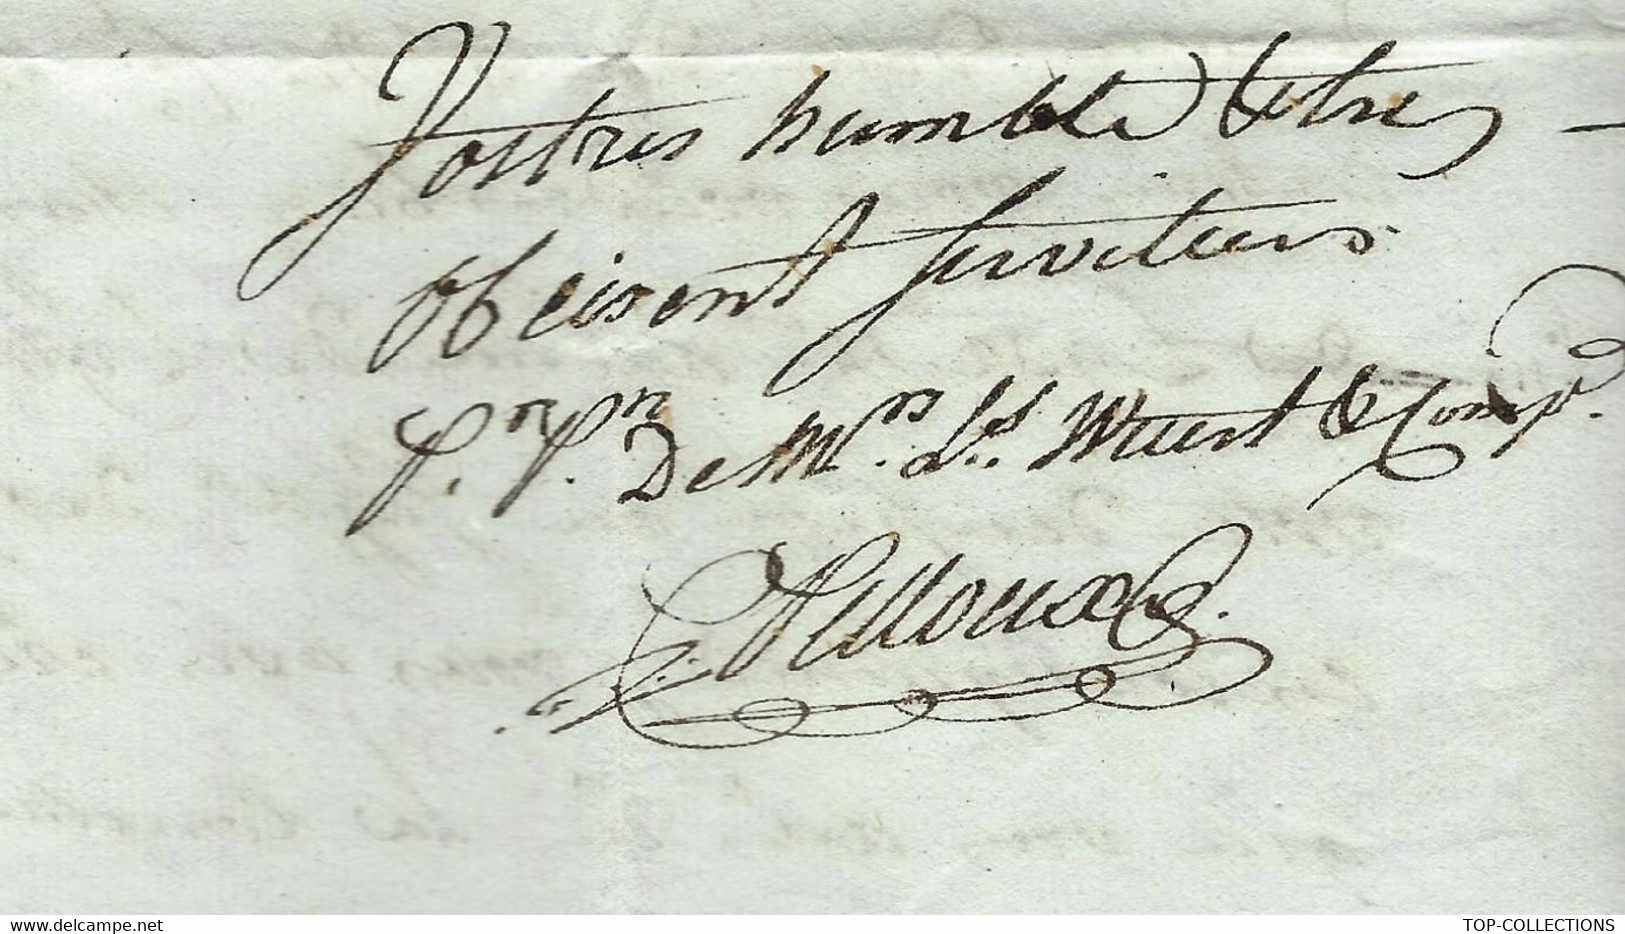 Vostres humble & tres
obeisent serviteurs
P.r P.n De Mrs. Ls. Wuest & Comp.e
Pelloux
delcampe.net
TOP-COLLECTIONS